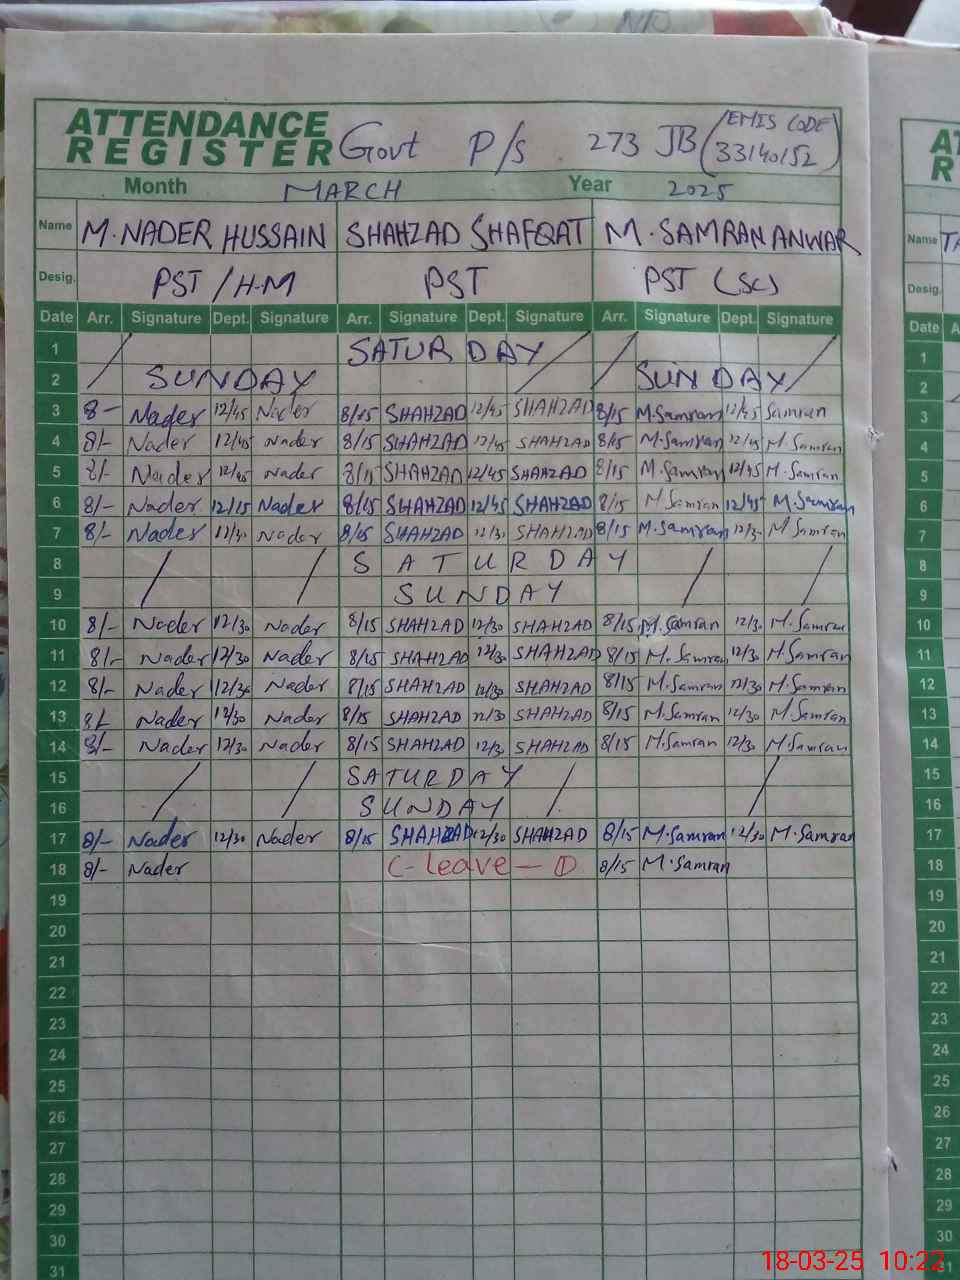 ATTENDANCE
REGISTER Govt P/S 273 JB (EMIS CODE 33140152)
Month MARCH Year 2025
Name M. NADER HUSSAIN SHAHZAD SHAFQAT M. SAMRAN ANWAR Name
Desig. PST / H.M PST PST (SC) Desig.
Date Arr. Signature Dept. Signature Arr. Signature Dept. Signature Arr. Signature Dept. Signature Date
1 SATURDAY 1
2 SUNDAY SUNDAY 2
3 8- Nader 12/45 Nader 8/15 SHAHZAD 12/45 SHAHZAD 8/15 M.Samran 12/45 Samran 3
4 8/- Nader 12/45 Nader 8/15 SHAHZAD 12/45 SHAHZAD 8/15 M.Samran 12/45 M.Samran 4
5 8/- Nader 12/45 Nader 8/15 SHAHZAD 12/45 SHAHZAD 8/15 M.Samran 12/45 M.Samran 5
6 8/- Nader 12/15 Nader 8/15 SHAHZAD 12/45 SHAHZAD 8/15 M Samran 12/45 M.Samran 6
7 8/- Nader 12/30 Nader 8/15 SHAHZAD 12/30 SHAHZAD 8/15 M.Samran M.Samran 7
8 SATURDAY 8
9 SUNDAY 9
10 8/- Nader 12/30 Nader 8/15 SHAHZAD 12/30 SHAHZAD 8/15 M.Samran 12/30 M.Samran 10
11 8/- Nader 12/30 Nader 8/15 SHAHZAD 12/30 SHAHZAD 8/15 M.Samran 12/30 M.Samran 11
12 8/- Nader 12/30 Nader 8/15 SHAHZAD 12/30 SHAHZAD 8/15 M.Samran 12/30 M.Samran 12
13 8/- Nader 12/30 Nader 8/15 SHAHZAD 12/30 SHAHZAD 8/15 M.Samran 12/30 M.Samran 13
14 8/- Nader 12/30 Nader 8/15 SHAHZAD 12/30 SHAHZAD 8/15 M.Samran 12/30 M.Samran 14
15 SATURDAY 15
16 SUNDAY 16
17 8/- Nader 12/30 Nader 8/15 SHAHZAD 12/30 SHAHZAD 8/15 M.Samran 12/30 M.Samran 17
18 8/- Nader C-leave - 1 8/15 M.Samran 18
19 19
20 20
21 21
22 22
23 23
24 24
25 25
26 26
27 27
28 28
29 29
30 30
31 31
18-03-25 10:22